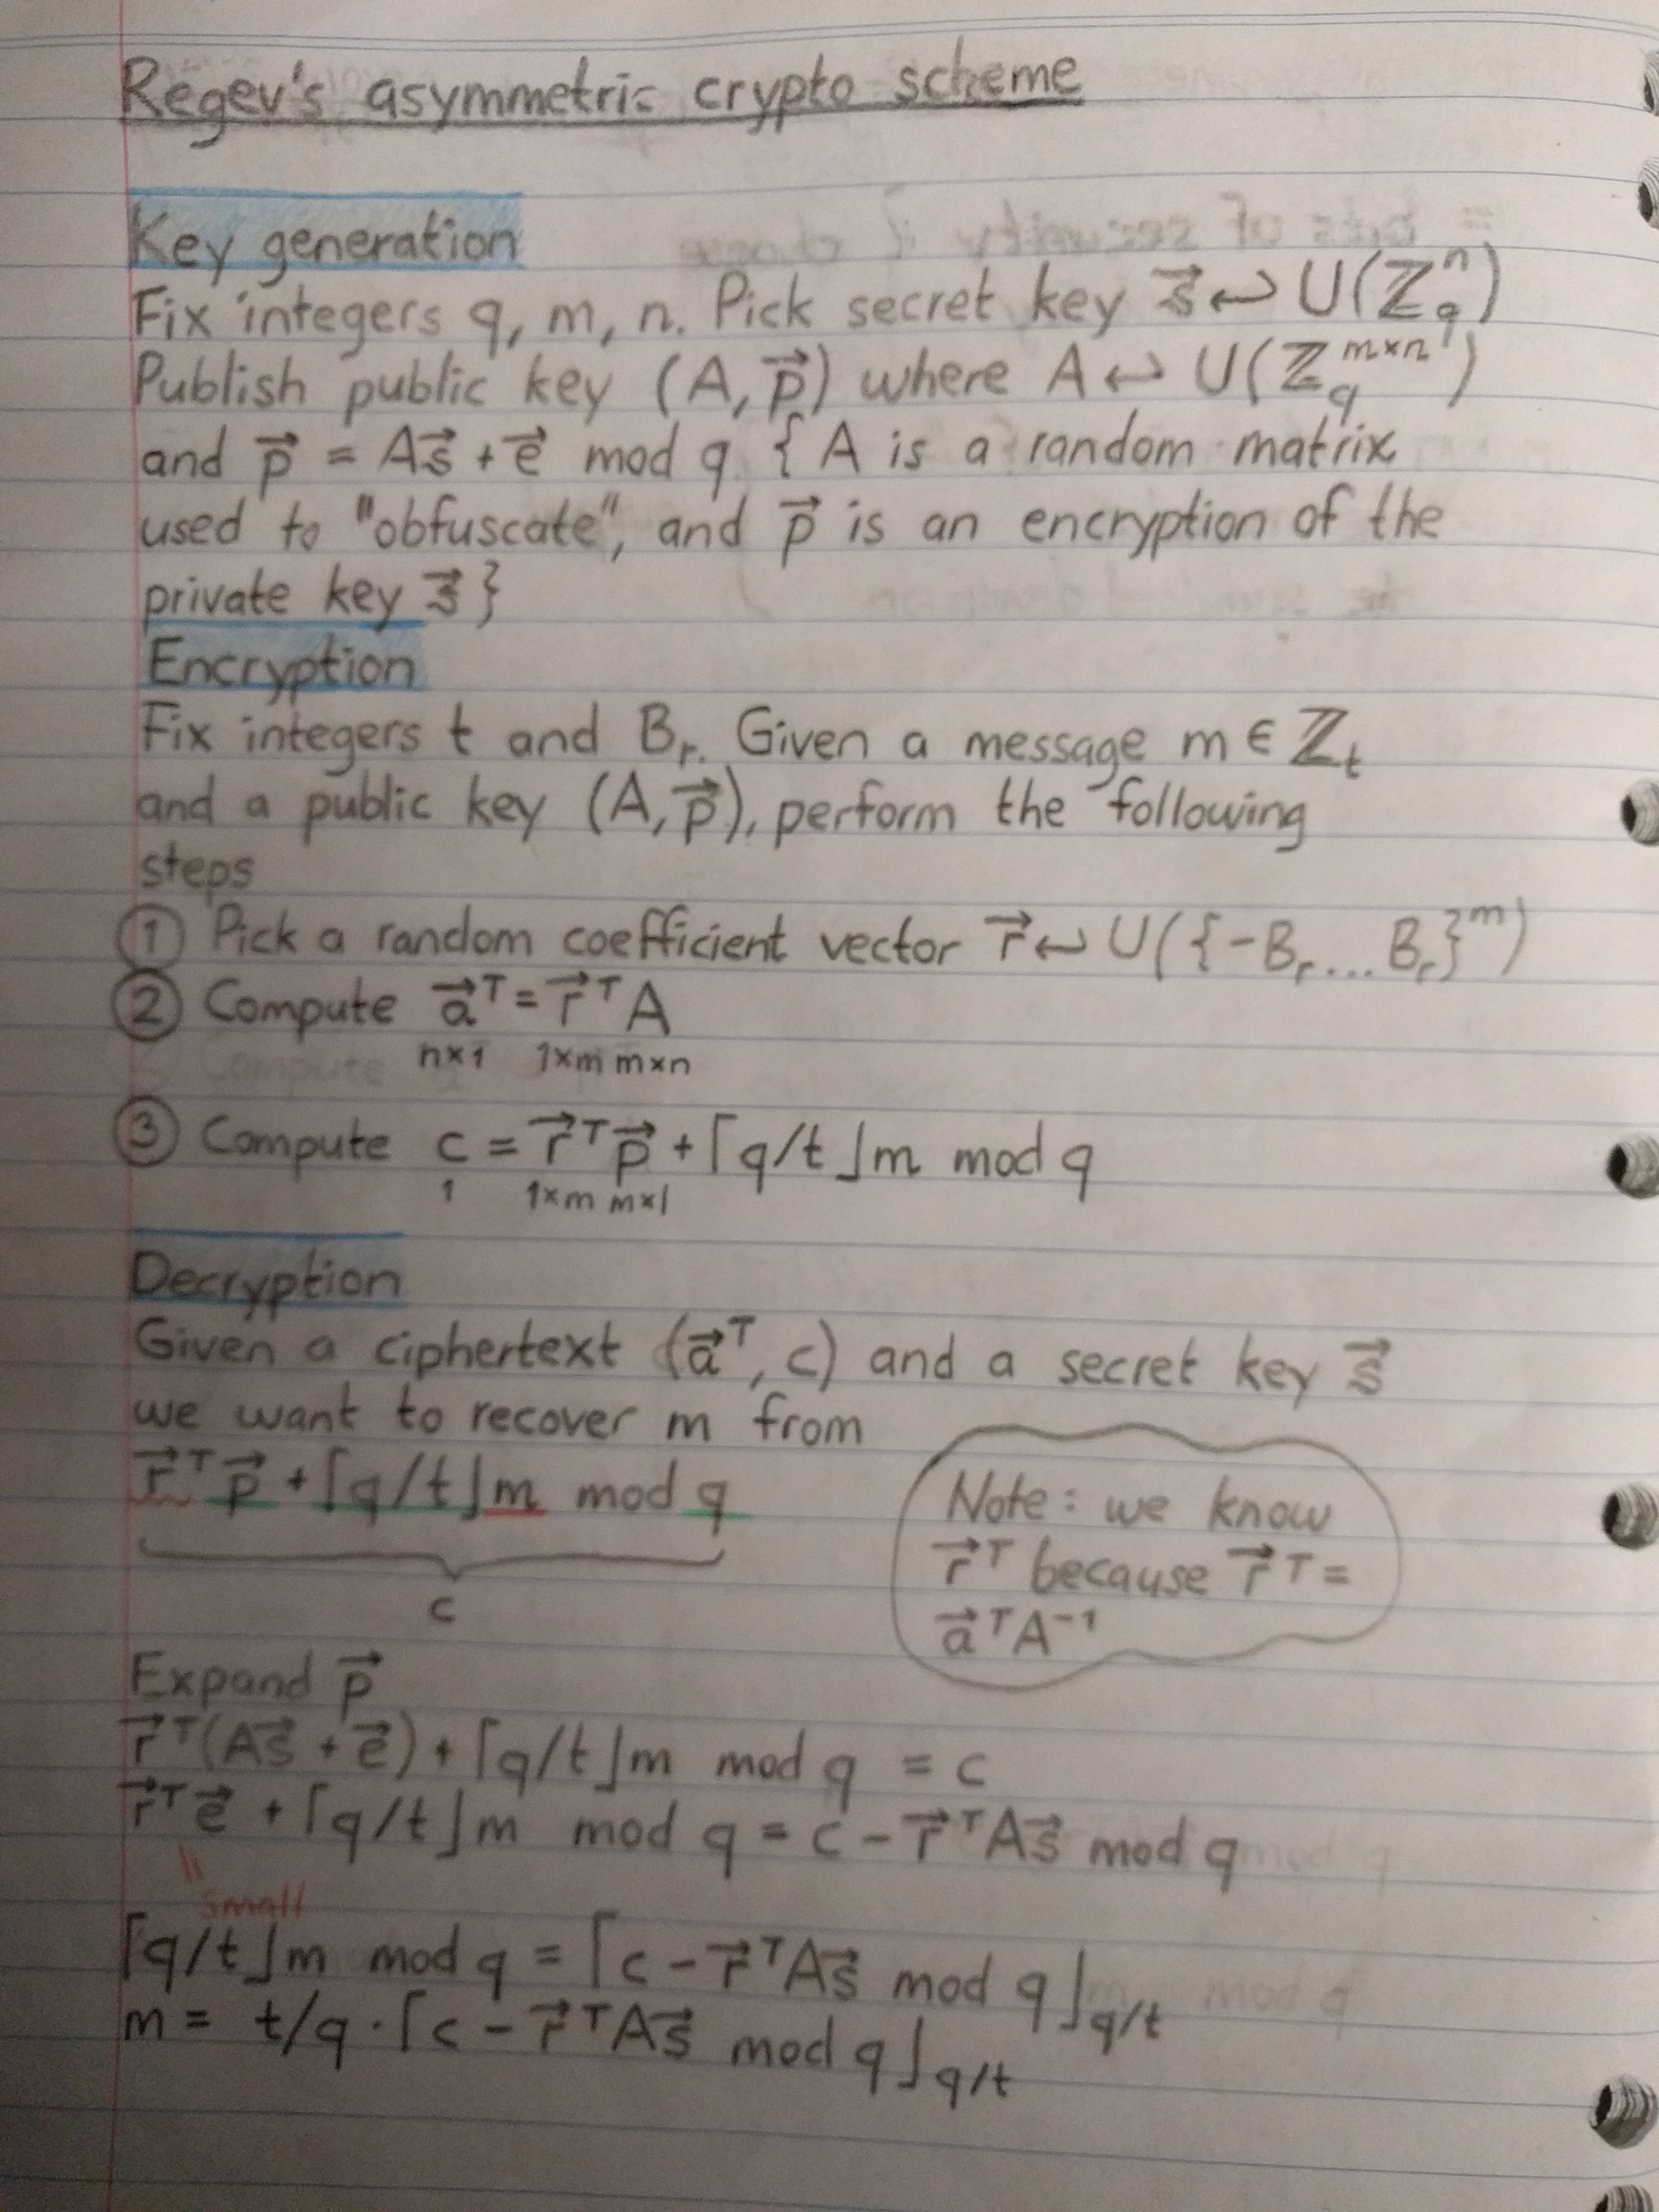 Regev's asymmetric crypto scheme
Key generation
Fix integers q, m, n. Pick secret key s⃗ ↩ U(ℤ_q^n)
Publish public key (A, p⃗) where A ↩ U(ℤ_q^{m×n})
and p⃗ = As⃗ + e⃗ mod q { A is a random matrix
used to "obfuscate", and p⃗ is an encryption of the
private key s⃗ }
Encryption
Fix integers t and B_r. Given a message m ∈ ℤ_t
and a public key (A, p⃗), perform the following
steps
① Pick a random coefficient vector r⃗ ↩ U({-B_r ... B_r}^m)
② Compute a⃗^T = r⃗^T A
n×1 1×m m×n
③ Compute c = r⃗^T p⃗ + ⌈q/t⌋m mod q
1 1×m m×1
Decryption
Given a ciphertext (a⃗^T, c) and a secret key s⃗
we want to recover m from
r⃗^T p⃗ + ⌈q/t⌋m mod q
c
Note: we know
r⃗^T because r⃗^T =
a⃗^T A^-1
Expand p⃗
r⃗^T(As⃗ + e⃗) + ⌈q/t⌋m mod q = c
r⃗^T e⃗ + ⌈q/t⌋m mod q = c - r⃗^T As⃗ mod q
small
⌈q/t⌋m mod q = ⌈c - r⃗^T As⃗ mod q⌋_q/t
m = t/q · ⌈c - r⃗^T As⃗ mod q⌋_q/t